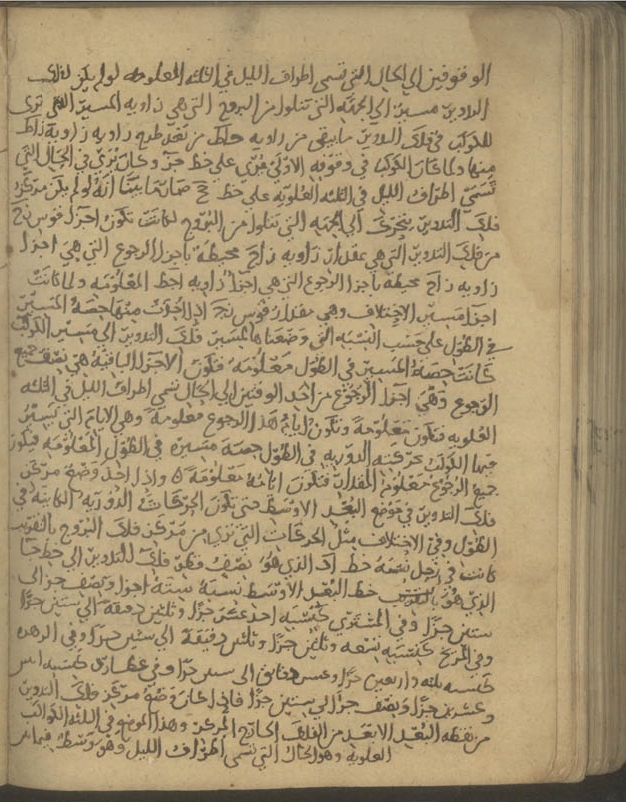 الوقوفين الى الحال التي تسمى اطراف الليل في الثلثة المعلومة لو لم يكن لفلك
التدوير مسير الى الجهة التي تتلوا من البروج التي هي زاوية المسير التي ترى
للكوكب في فلك التدوير ما يبقى من زاوية
منها ولما كان الكوكب في وقوفه الاولى يرى على خط حز وكان يرى في الحال التي
تسمى اطراف الليل في الثلثة العلوية على خط حح ضمان ما بينا انه لو لم يكن مركز
فلك التدوير يتحرك الى الجهة التي تتلوا من البروج لكانت تكون اجزا قوس زح
من فلك التدوير التي هي مقدار زاوية زاح محيطة باجزا الرجوع التي هي اجزا
زاوية زاح محيطة باجزا الرجوع التي هي اجزا زاوية المعلومة ولما كانت
اجزا مسير الاختلاف وهي مقدار قوس زح اذا اخذت منها حصة المسير
في الطول على حسب النسبة التي وضعناها لمسير فلك التدوير الى مسير الكوكب
كانت حصة المسير في الطول معلومة فتكون الاجزا الباقية هي نصف جميع
الرجوع وهي اجزا الرجوع من احد الوقفين الى الحال تسمى اطراف الليل في الثلثة
العلوية فتكون معلومة وتكون ايام هذا الرجوع معلومة وهي الايام التي يسير
فيها الكوكب بحركته الدورية في الطول حصة مسيره في الطول المعلومة فيكون
جميع الرجوع معلوم المقدار فتكون ايامه معلومة واذا اخذ وضع مركز
فلك التدوير في موضع البعد الاوسط حتى تكون الحركات الدورية الكاينة في
الطول وفي الاختلاف مثل الحركات التي ترى من مركز فلك البروج بالتقريب
كانت في زحل نسبة خط اد الذي هو نصف قطر فلك التدوير الى خط حا
الذي هو خط البعد الاوسط نسبة ستة اجزا ونصف جز الى
ستين جزا وفي المشتري كنسبة احد عشر جزا وثلثين دقيقة الى ستين جزا
وفي المريخ كنسبة تسعة وثلثين جزا وثلثين دقيقة الى ستين جزا وفي الزهرة
كنسبة ثلثة واربعين جزا وعشر دقائق الى ستين جزا وفي عطارد كنسبة اثنين
وعشرين جزا ونصف جزا الى ستين جزا فاذا كان وضع مركز فلك التدوير
من نقطة البعد الابعد من الفلك الخارج المركز وهذا الموضع في الثلثة الكواكب
العلوية وهو الحال التي تسمى اطراف الليل وهو وسط